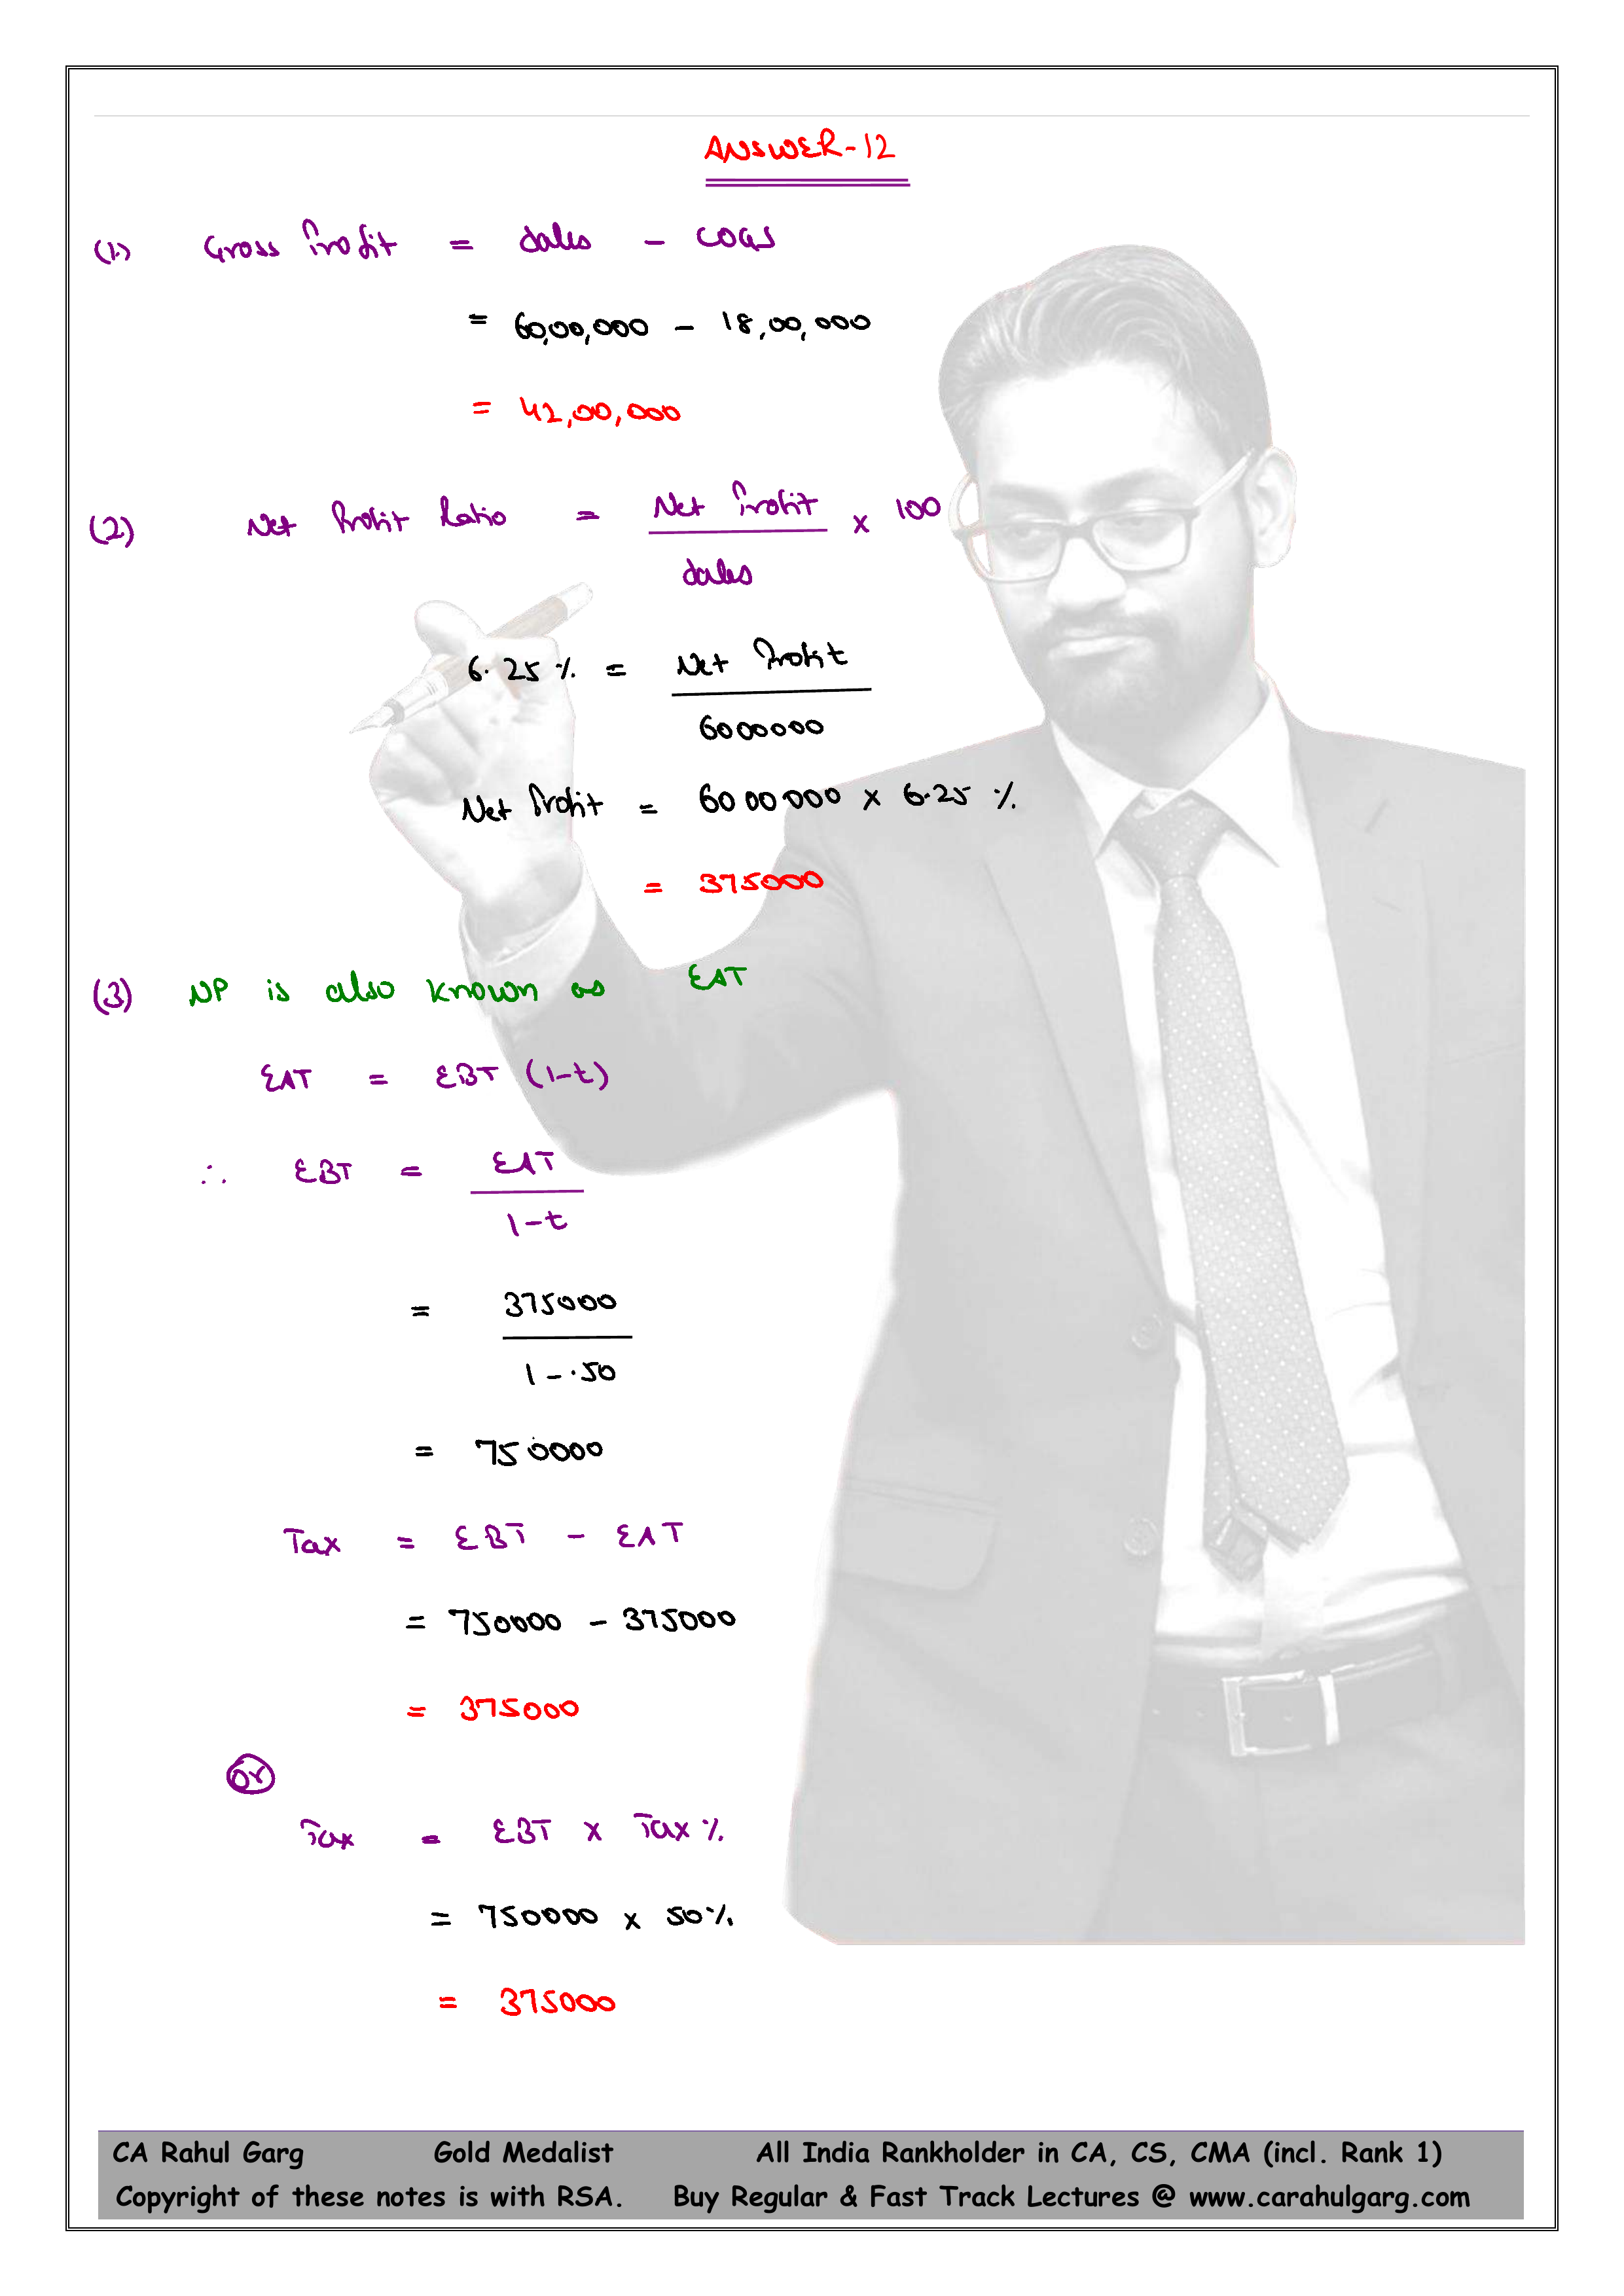 ANSWER-12
(1.) Gross Profit = Sales - COGS
= 60,00,000 - 18,00,000
= 42,00,000
(2) Net Profit Ratio = Net Profit / Sales x 100
6.25 % = Net Profit / 6000000
Net Profit = 6000000 x 6.25 %
= 375000
(3) NP is also known as EAT
EAT = EBT (1-t)
∴ EBT = EAT / 1-t
= 375000 / 1-.50
= 750000
Tax = EBT - EAT
= 750000 - 375000
= 375000
or
Tax = EBT x Tax %
= 750000 x 50%
= 375000
CA Rahul Garg Gold Medalist All India Rankholder in CA, CS, CMA (incl. Rank 1)
Copyright of these notes is with RSA. Buy Regular & Fast Track Lectures @ www.carahulgarg.com